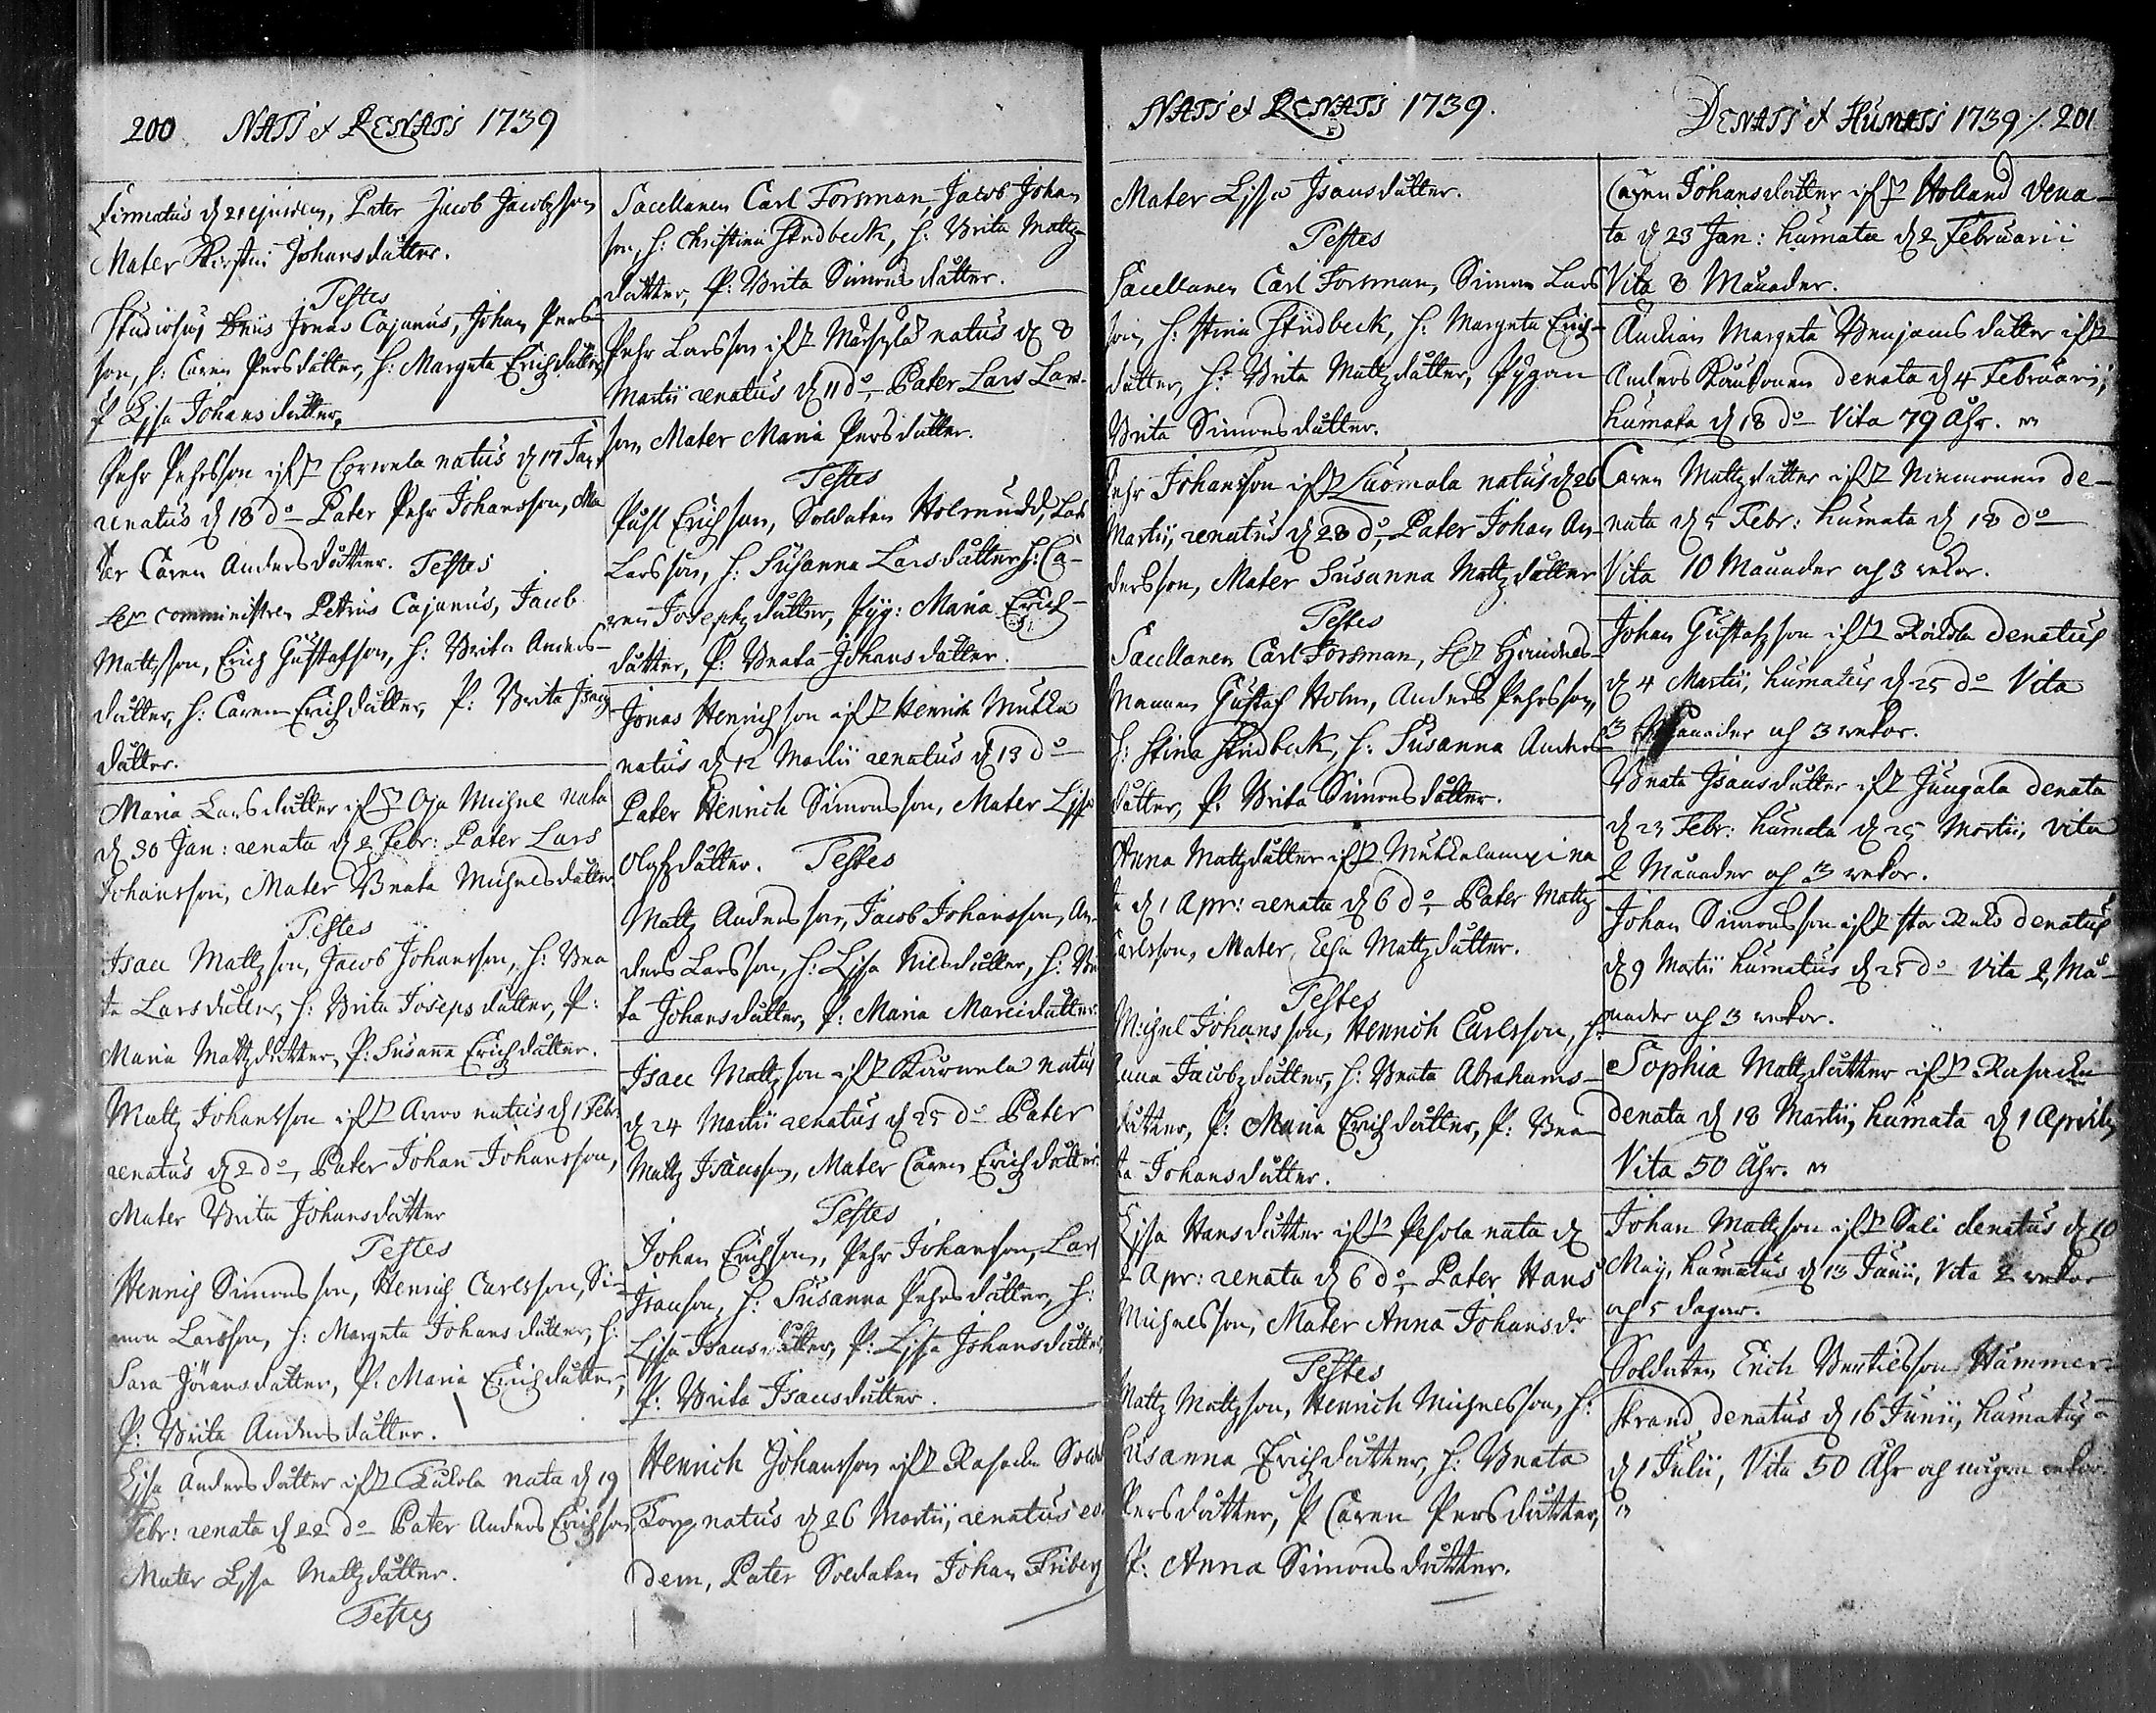 200 NATI et RENATI 1739
firmatus d 21 ejusdem, Pater Jacob Jacobsson
Mater Kirstin Johansdåtter.
Testes
Studiosus Jonas Cajanus, Johan Pers-
son, h: Caren Persdåtter, h: Margeta Erichsdåtter,
P Lisa Johansdåtter,
Pehr Pehrsson ifr Corwela natus d 17 Jan
renatus d 18 do Pater Pehr Johansson, Ma
ter Caren Andersdåtter. Testes
comministren Petrus Cajanus, Jacob
Mattsson, Erich Gustafson, h: Brita Anders-
dåtter, h: Caren Erichsdåtter, P: Brita Isacs
dåtter.
Maria Larsdåtter ifr Oja Michel nata
d 30 Jan: renata d 2 Febr: Pater Lars
Johansson, Mater Beata Michelsdåtter
Testes
Isaac Mattzson, Jacob Johansson, h: Bea
ta Larsdåtter, h: Brita Josepsdåtter, P:
Maria Mattzdåtter, P: Susanna Erichsdåtter.
Mattz Johansson ifr Arwo natus d 1 Febr:
renatus d 2 do, Pater Johan Johansson,
Mater Brita Johansdåtter
Testes
Henrich Simonsson, Henrich Carlsson, Si-
mon Larsson, h: Margeta Johansdåtter, h:
Sara Jöransdåtter, P: Maria Erichsdåtter,
P: Brita Andersdåtter.
Lisa Andersdåtter ifr Kukola nata d 19
Febr: renata d 22 do Pater Anders Erichsson
Mater Lisa Mattzdåtter.
Testes
Sacellanen Carl Forsman, Jacob Johan
son, h: Christina Stridbeck, h: Brita Mattz
dåtter, P: Brita Simonsdåtter.
Pehr Larsson ifr natus d 8
Martii renatus d 11 do, Pater Lars Lars-
son, Mater Maria Persdåtter.
Testes
Påhl Erichson, Soldaten Holmudd, Lars
Larsson, h: Susanna Larsdåtter, h: Ca-
ren Josephzdåtter, Pyg: Maria Erich-
dåtter, P: Beata Johansdåtter.
Jonas Henrichson ifr Henrich Mukka
natus d 12 Martii renatus d 13 do
Pater Henrich Simonsson, Mater Lisa
Olofzdåtter. Testes
Mattz Andersson, Jacob Johansson, An-
ders Larsson, h: Lisa Nilsdåtter, h: Be
ta Johansdåtter, P: Maria Marcidåtter.
Isaac Mattzson ifr Karwela natus
d 24 Martii renatus d 25 do Pater
Mattz Isacsson, Mater Caren Erichsdåtter.
Testes
Johan Erichsson, Pehr Johansson, Lars
Isacson, h: Susanna Pehrsdåtter, h:
Lisa Isacsdåtter, P: Lisa Johansdåtter,
P: Brita Isacsdåtter.
Henrich Johansson ifr Rasacka Solda
Torp natus d 26 Martii, renatus eo
dem, Pater Soldaten Johan Friberg
NATI et RENATI 1739.
Mater Lisa Isacsdåtter.
Testes
Sacellanen Carl Forsman, Simon Lars
son, h: Stina Stridbeck, h: Margeta Erich-
dåtter, h: Brita Mattzdåtter, Pygan
Brita Simonsdåtter.
Pehr Johansson ifr Luomala natus d 26
Martii, renatus d 28 do, Pater Johan An-
dersson, Mater Susanna Mattzdåtter
Testes
Sacellanen Carl Forsman,
Mannen Gustaf Holm, Anders Pehrsson,
h: Stina Stridbeck, h: Susanna Anders
dåtter, P: Brita Simonsdåtter.
Anna Mattzdåtter ifr Mukkalampi na
ta d 1 Apr: renata d 6 do, Pater Mattz
Carlsson, Mater, Elsa Mattzdåtter.
Testes
Michel Johansson, Henrich Carlsson, h:
Anna Jacobzdåtter, h: Beata Abrahams-
dåtter, P: Maria Erichsdåtter, P: Bea
ta Johansdåtter.
Lisa Hansdåtter ifr Pesola nata d
2 Apr: renata d 6 do, Pater Hans
Michelsson, Mater Anna Johansdr
Testes
Mattz Mattzson, Henrich Michelsson, h:
Susanna Erichsdåtter, h: Beata
Persdåtter, P Caren Persdåtter,
P: Anna Simonsdåtter.
DENATI et HUMATI 1739 /. 201
Caren Johansdåtter ifr Holland dena-
ta d 23 Jan: humata d 2 Februarii
Vita 8 Månader.
Änckian Margeta Benjamsdåtter ifr
Anders Raukonen denata d 4 Februarii,
humata d 18 do Vita 79 Åhr.
Caren Mattzdåtter ifr Niemonen de-
nata d 5 Febr: humata d 18 do
Vita 10 Månader och 3 wekor.
Johan Gustafzson ifr denatus
d 4 Martii, humatus d 25 do Vita
3 Månader och 3 wekor.
Beata Isacsdåtter ifr Jungala denata
d 23 Febr: humata d 25 Martii, vita
2 Månader och 3 wekor.
Johan Simonsson ifr stor denatus
d 9 Martii humatus d 25 do Vita 2 Må-
nader och 3 wekor.
Sophia Mattzdåtter ifr Rasacka
denata d 18 Martii, humata d 1 Aprilis
Vita 50 Åhr.
Johan Mattzson ifr Sali denatus d 10
Maij, humatus d 13 Junii, Vita 2 wekor
och 5 dagar.
Soldaten Erich Bertilsson Hammer-
strand denatus d 16 Junii, humatus
d 1 Julii, Vita 50 Åhr och någre wekor.